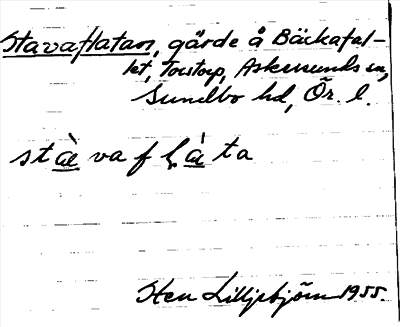 Stavaflatan, gärde å Bäckafal-
let, Torstorp, Askersunds sn,
Sundbo hd, Ör. l.
stàvaflàta
Sten Lilljebjörn 1955.